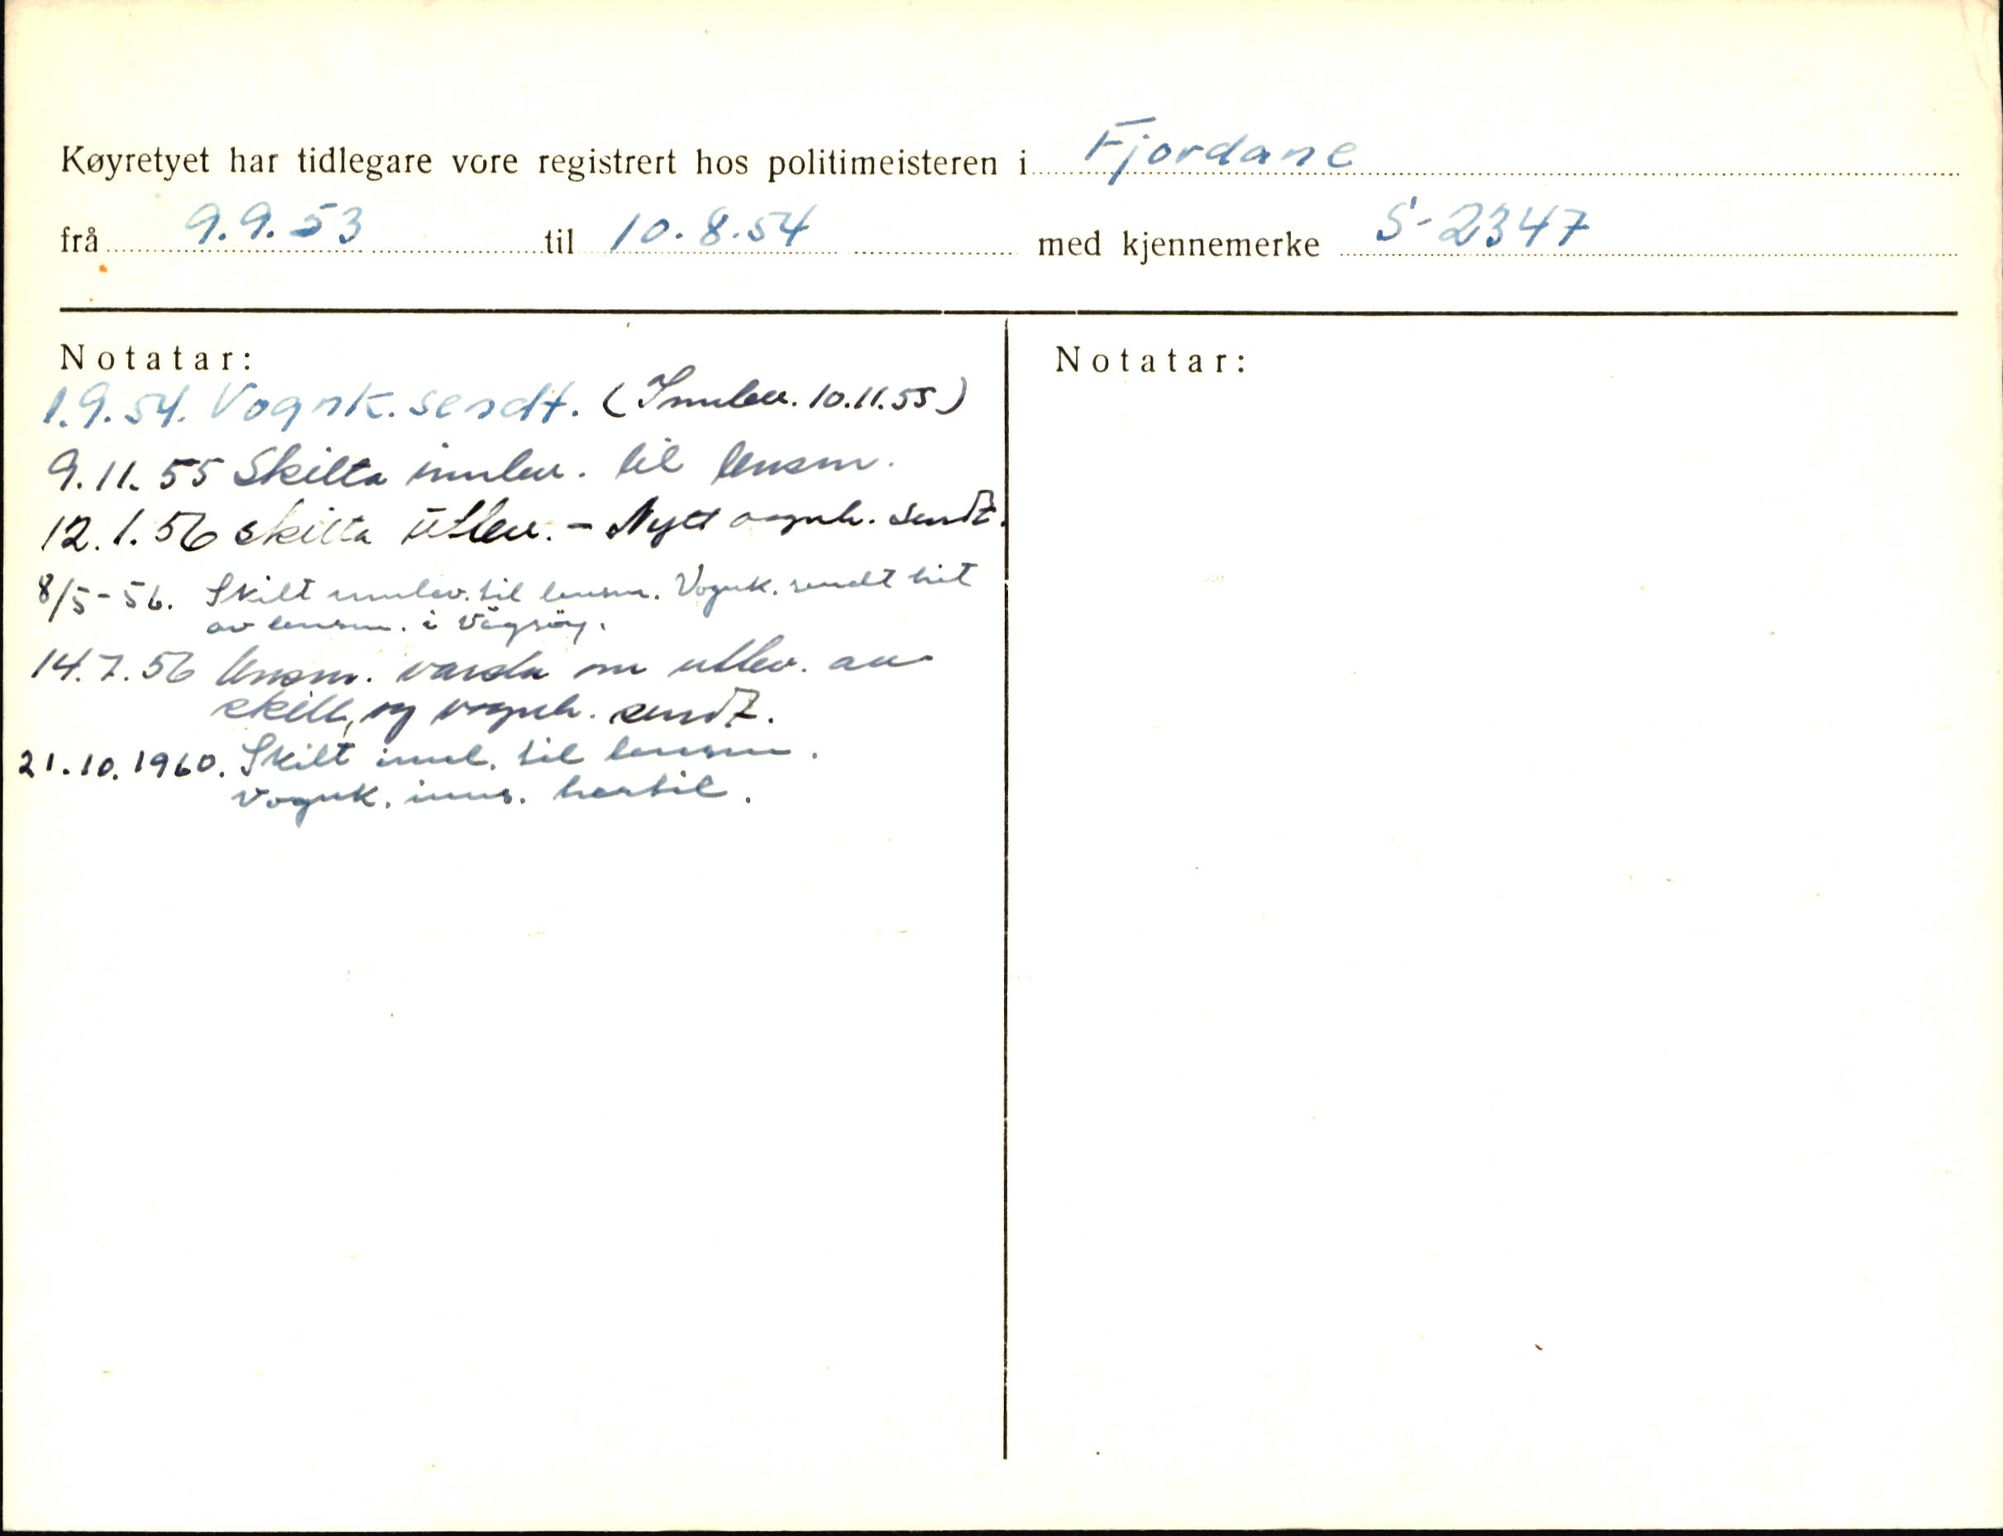 Køyretyet har tidlegare vore registrert hos politimeisteren i Fjordane
frå 9.9.53 til 10.8.54 med kjennemerke S-2347
Notatar:
1.9.54. Vognk. sendt. (Innlev. 10.11.55)
9.11.55 Skilta innlev. til lensm.
12.1.56 skilta utlev. - Nytt vognk. sendt.
8/5-56. Skilt innlev. til lensm. Vognk. sendt hit
av lensm. i Vågsøy.
14.7.56 lensm. varsla om utlev. av
skilt, og vognk. sendt.
21.10.1960. Skilt innl. til lensm.
Vognk. inns. hertil.
Notatar: